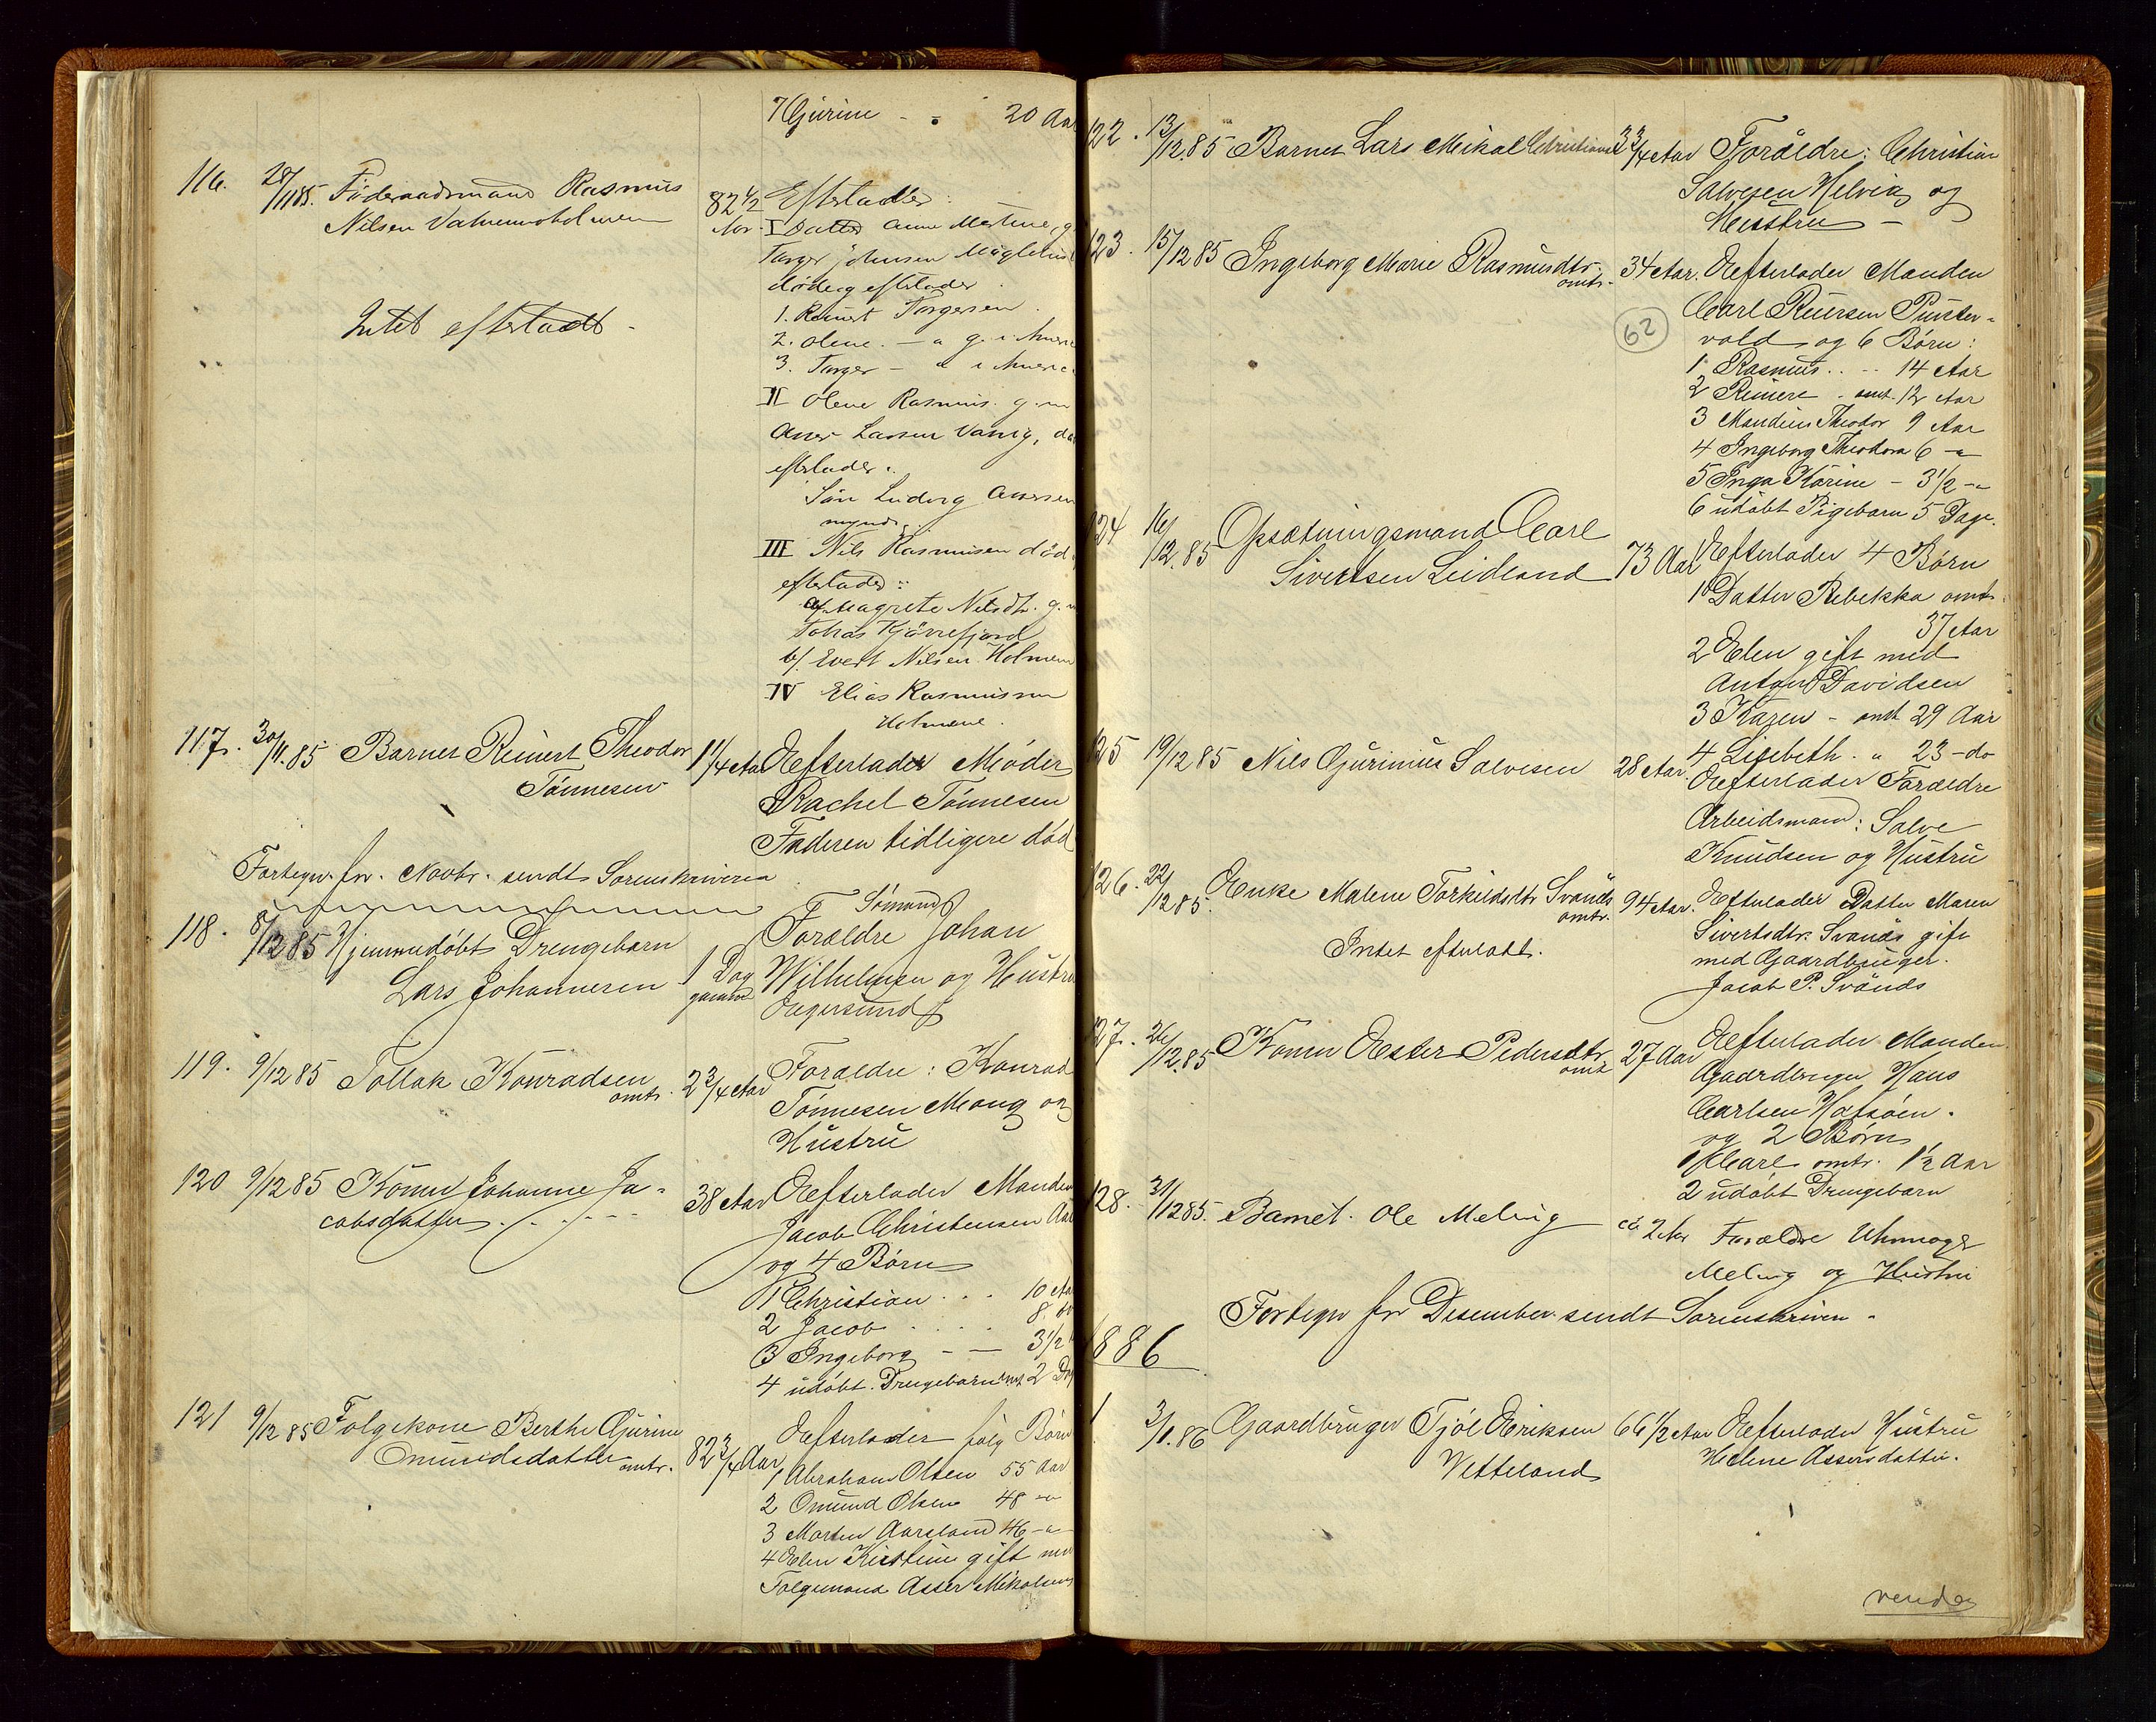 7 Gjurine - " 20 Aar
116. 28/11 85. Föderaadsmand Rasmus
Nilsen Vatnemoholmen
82 1/2 Aar
Intet efterladt -
Efterlader:
I Datter Anne Martine, g
Targer Johnsen
död og efterlader
1. Reinert Torgersen.
2. Olene - " g. i Amerc
3. Torger - " i Americ
II Olene Rasmus. g. m
Aner Larsen Vanig, dö
efterlader.
Sön Ludvig Anersen
mynd.
III Nils Rasmusen död
efterlader:
a/ Magrete Nilsdtr. g. m
Tobias Kjörrefjord
b/. Evert Nilsen Holmen
IV Elias Rasmussen
Holmene.
117. 30/11.85 Barnet Reinert Theodor
Tönnesen
1 1/4 Aar
Efterlader Moder
Rachel Tönnesen
Faderen tidligere död
Fortegn. for Novbr. sendt Sorenskriveren
118. 8/12 85 Hjemmedöbt Drengebarn
Lars Johannesen
1 Dag
gammel
Sömand
Forældre Johan
Wilhelmsen og Hustru
Eegersund
119. 9/12 85 Tollak Konradsen
omtr. 2 3/4 Aar
Forældre: Konrad
Tönnesen Mong og
Hustru
120 9/12 85 Kone Johanne Ja-
cobsdatter
38 Aar
Efterlader Manden
Jacob Christensen Aas
og 4 Börn
1 Christian . . . 10 Aar
2 Jacob . . . . 8 do
3 Ingeborg - - 3 1/2 "
4 udöbt Drengebarn omt 2 Dag
121 9/12 85 Folgekone Berthe Gjurine
Omundsdatter omtr. 82 3/4 Aar
Eefterlader fölg Börn
1 Abraham Olsen 55 Aar
2 Omund Olsen 48 - "
3 Morten Aarsland 46 - "
4 Elen Kirstine gift med
Folgemand Asser Mikalsen
122. 13/12 85 Barnet Lars Mikal Christiansen
3 3/4 Aar
Forældre: Christian
Salvesen Helvig og
Hustru -
123. 15/12 85 Ingeborg Marie Rasmusdtr.
omtr. 34 Aar.
Eefterlader Manden
Carl Reiersen Puntervold
og 6 Börn:
62
1 Rasmus . . - 14 Aar
2 Reinert . omt. 12 Aar
3 Mandius Theodor 9 Aar
4 Ingeborg Theodora 6 - "
5 Inga Karine - 3 1/2 - "
6 udöbt Pigebarn 5 Dage.
124 16/12.85 Opsætningsmand Carl
Sivertsen Leidland
73 Aar
Eefterlader 4 Börn
1 Datter Rebekka omtr.
37 Aar
2 Elen gift med
Anton Davidsen
3 Karen - omt 29 Aar
4 Lisebeth. " 23 - do
125 19/12 85 Nils Gjurinius Salvesen
28 Aar.
Eefterlader Forældre
Arbeidsmand: Salve
Knudsen og Hustru
126. 22/12 85. Enke Malene Torkildsdtr Svånes
omtr. 94 Aar.
Intet efterladt.
Eefterlader Datter Maren
Sivertsdtr. Svånes gift
med Gaardbruger.
Jacob P. Svånes
127. 26/12.85 Konen Ester Pedersdtr
omt 27 Aar
Eefterlader Manden
Gaardbruger Hans
Carlsen Hafsöen.
og 2 Börn
1 Carl omtr. 1 1/2 Aar
2 udöbt Drengebarn
128. 31/12 85. Barnet Ole Meling
ca 2 Aar
Forældre Uhrmager
Meling og Hustru
Fortegn for Desember sendt Sorenskriveren -
1886
1 3/1.86 Gaardbruger Tjöl Eriksen
Vetteland
66 1/2 Aar
Eefterlader Hustru
Helene Assersdatter.
vende